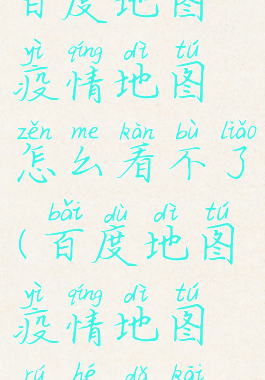 百度地图
yì qíng dì tú
疫情地图
zěn me kàn bù liǎo
怎么看不了
bǎi dù dì tú
(百度地图
yì qíng dì tú
疫情地图
rú hé dǎ kāi